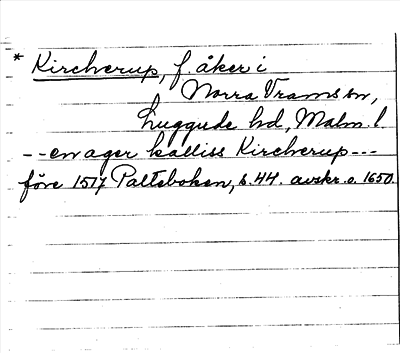 * Kircherup, f. åker i
Norra Vrams sn,
Luggude hd, Malm. l.
-- en ager kalliss Kircherup ---
före 1517 Palteboken, s. 44. avskr. o. 1650.